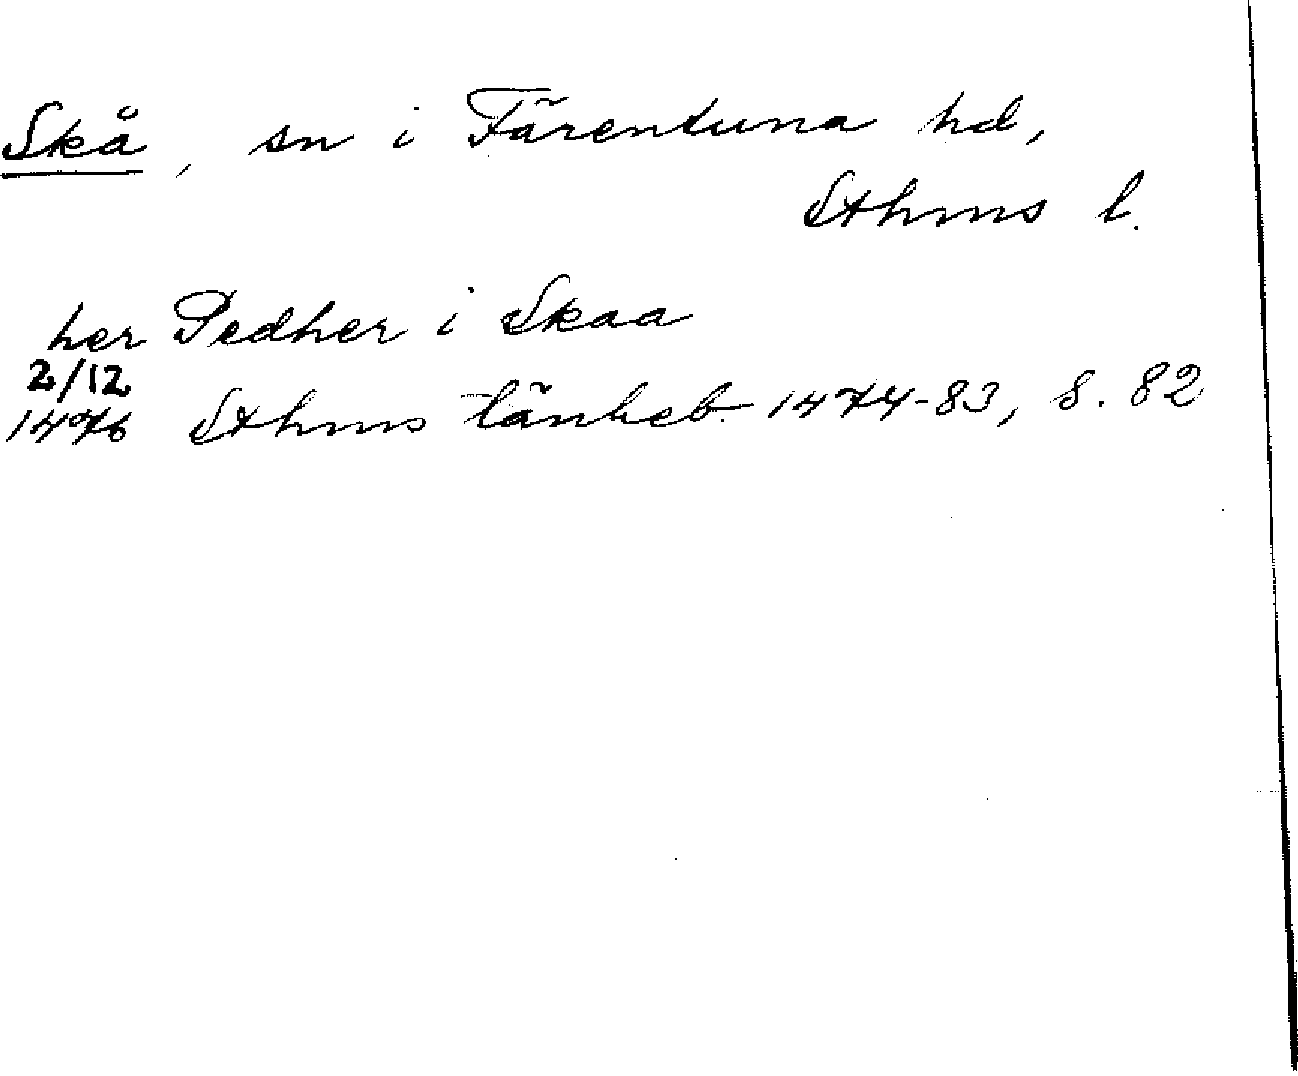 Skå, sn i Färentuna hd,
Sthms l.
her Pedher i Skaa
2/12
1476 Sthms tänkeb. 1474-83, s. 82